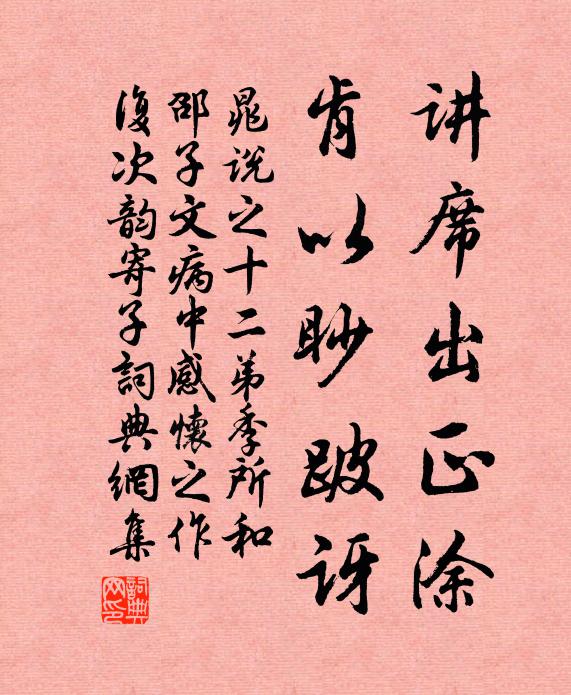 讲席出正涂
肯以眇跛讶
晁说之十二弟季所和
邵子文病中感懷之作
復次韵寄子詞典網集
詞典网印